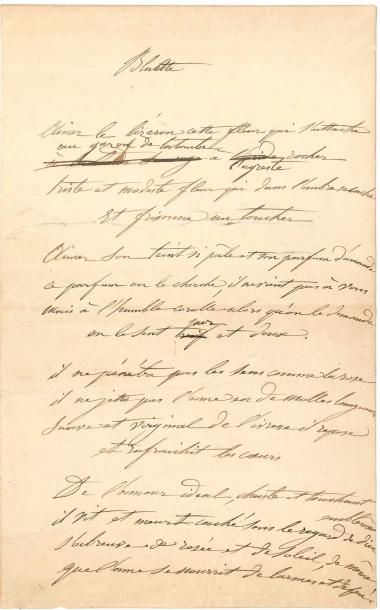 Bluette
Aimer le liseron cette fleur qui s'attache
au gazon de la tombe
à rocher
agreste
triste et modeste fleur qui dans l'ombre se cache
Et frisonne au toucher
Aimer son teint si pâle et son parfum d'amande
ce parfum on le cherche il ne vient pas à vous
mais à l'humble corolle alors qu'on le demande
pur
on le sent et doux.
il ne pénètre pas les sens comme la rose
il ne jette pas l'ame en de molles langueurs
suave et virginal de l'ivresse il repose
et rafraichit les cœurs
De l'amour idéal, chaste et touchant
emblême
il vit et meurt caché sous le regard de dieu
S'abreuve de rosée et de soleil, de même
que l'ame se nourrit de larmes et de feu!